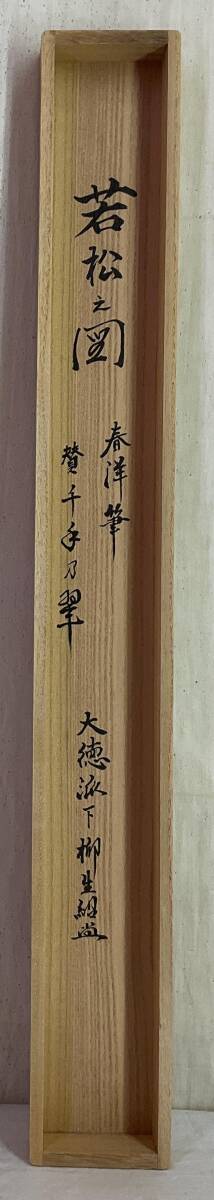 若松之図
春洋筆
賛千年乃翠
大徳派下柳生紹尚